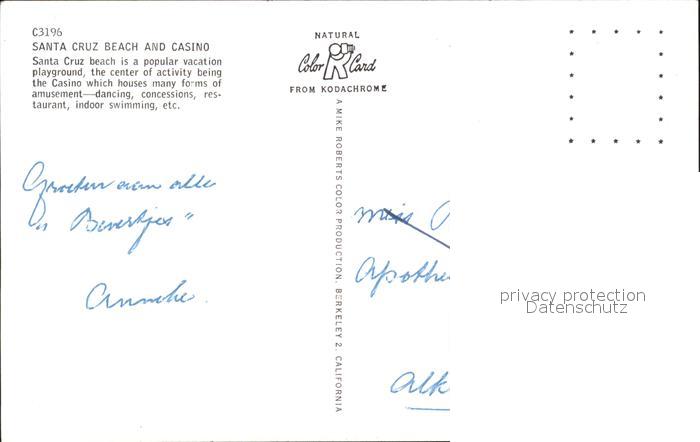 C3196
SANTA CRUZ BEACH AND CASINO
Santa Cruz beach is a popular vacation
playground, the center of activity being
the Casino which houses many forms of
amusement—dancing, concessions, res-
taurant, indoor swimming, etc.
NATURAL
Color Card
FROM KODACHROME
A MIKE ROBERTS COLOR PRODUCTION, BERKELEY 2, CALIFORNIA
Groeten aan alle
Bevertjes"
Anneke.
Miss
Apothe
Alk
privacy protection
Datenschutz